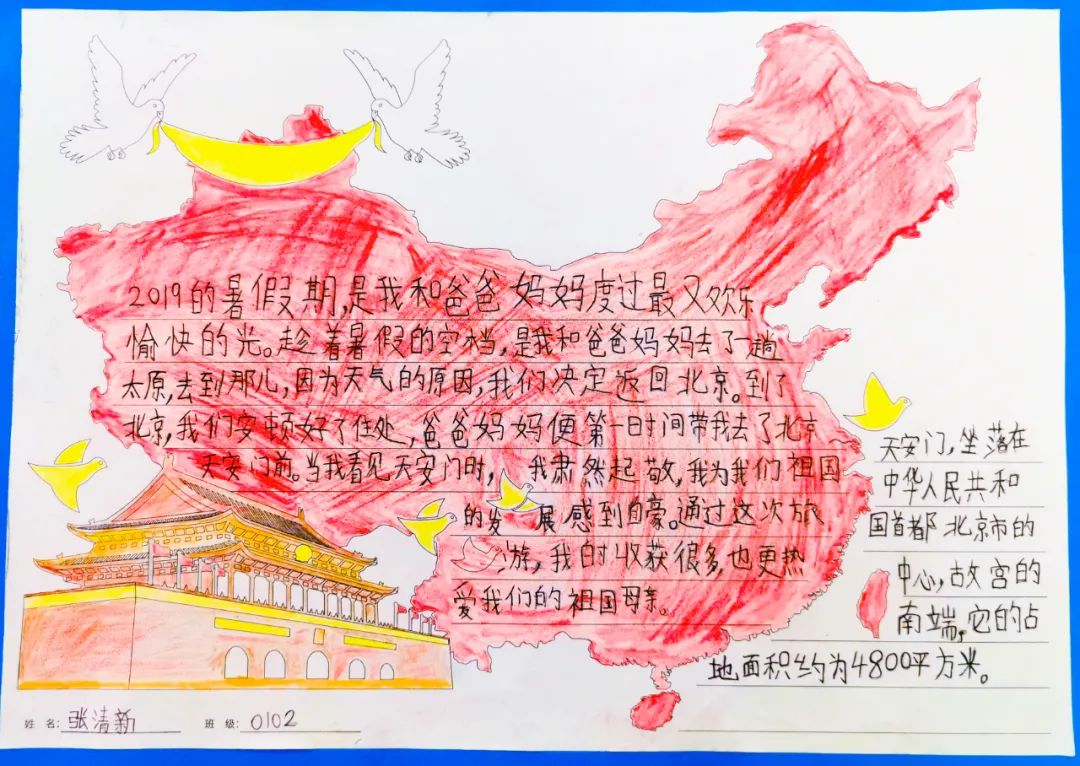 2019的暑假期,是我和爸爸妈妈度过最又欢乐
愉快的光。趁着暑假的空档,是我和爸爸妈妈去了一趟
太原,去到那儿,因为天气的原因,我们决定返回北京。到了
北京,我们安顿好了住处,爸爸妈妈便第一时间带我去了北京
天安门前。当我看见天安门时,我肃然起敬,我为我们祖国
的发展感到自豪。通过这次旅
游,我的收获很多,也更热
爱我们的祖国母亲。
天安门,坐落在
中华人民共和
国首都北京市的
中心,故宫的
南端,它的占
地面积约为4800平方米。
姓 名:张清新 班 级:0102